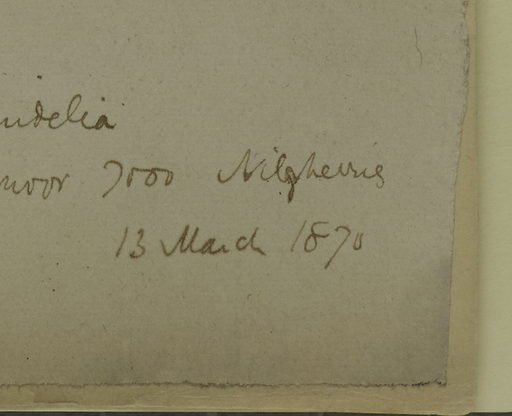 ndelia
noor 7000 Nilgherries
13 March 1870